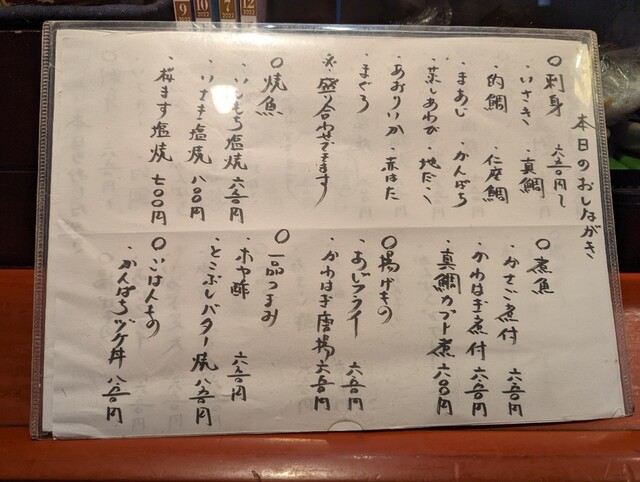 本日のおしながき
○刺身 六五〇円〜
・いさき ・真鯛
・的鯛 ・仁座鯛
・まあじ ・かんぱち
・蒸しあわび ・地だこ
・あおりいか ・赤はた
・まぐろ
※盛り合わせできます
○焼魚
・いしもち塩焼 六五〇円
・いさき塩焼 八〇〇円
・桜ます塩焼 七〇〇円
○煮魚
・かさご煮付 六五〇円
・かわはぎ煮付 六五〇円
・真鯛カブト煮 六〇〇円
○揚げもの
・あじフライ 六五〇円
・かわはぎ唐揚 六五〇円
○一品つまみ
・ホヤ酢 六五〇円
・とこぶしバター焼 八五〇円
○ごはんもの
・かんぱちヅケ丼 八五〇円
9
10
7
12